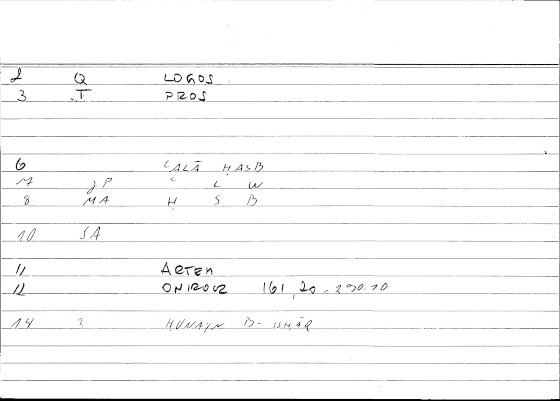 2 Q LOGOS
3 T PROS
6 ʿALĀ ḤASB
7 JP ʿ L W
8 MA Ḥ S B
10 SA
11 ARTEM
12 ONIROCR 161,20-290.10
14 ? ḤUNAYN B-ISḤĀQ